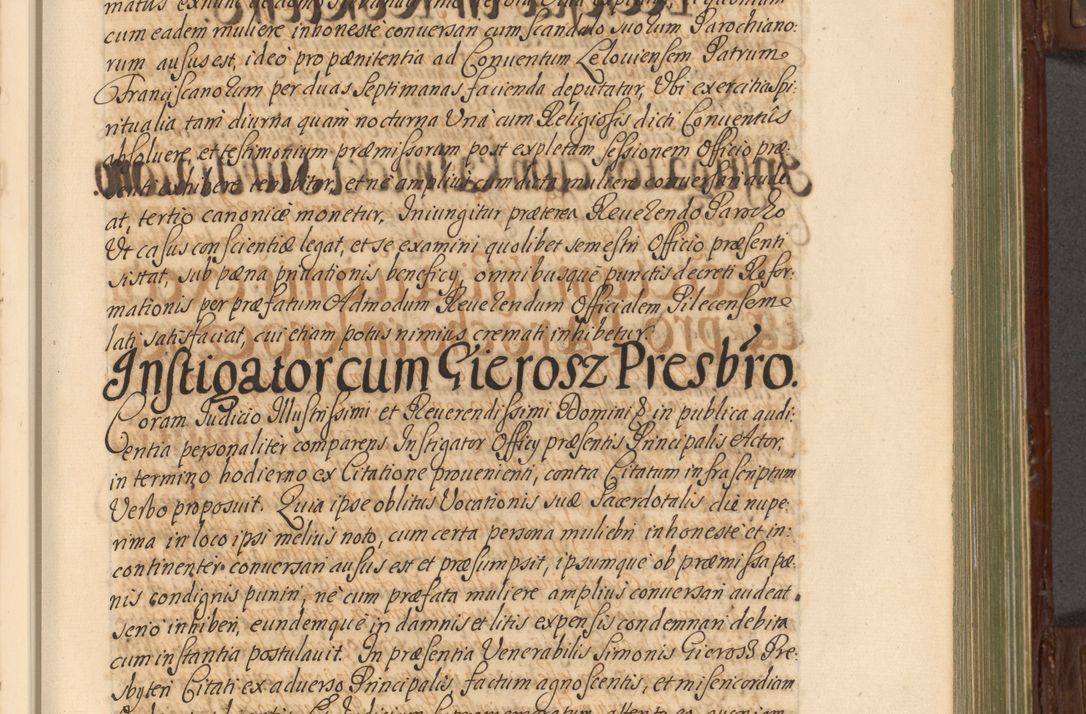 cum eadem muliere inhonestè conversari cum scandalo suorum Parochiano:
rum ausus est, ideò pro pænitentia ad Conventum Leloviensem Patrum
Franciscanorum per duas septimanas facienda deputatur, Vbi exercitia spi:
ritualia tam diurna quam nocturna Unà cum Religiosis dicti Conventûs
absolvere, et testimonium præmissorum post expletam sessionem Officio præ:
senti exhibere tenebitur, et nè amplius cum dicta muliere conversari aude
at, tertio canonicè monetur. Iniungitur præterea Reverendo Parocho
Vt casus conscientiæ legat, et se examini quolibet semestri Officio præsenti
sistat, sub pæna privationis beneficy, omnibusque punctis decreti Refor:
mationis per præfatum Admodum Reverendum Officialem Pilecensem
lati satisfaciat, cui etiam potus nimius cremati inhibetur.
Instigator cum Gierosz Presbro.
Coram Iudicio Illustrissimi et Reverendissimi Domini in publica audi:
entia personaliter comparens Instigator Officy præsentis Principalis Actor,
in termino hodierno ex Citatione provenienti, contra Citatum infrascriptum
Verbo proposuit. Quia ipse oblitus Vocationis suæ Sacerdotalis die nupe:
rima in loco ipsi melius noto, cum certa persona muliebri inhonestè et in:
continenter conversari ausus est et præsumpsit, ipsumque ob præmissa pæ:
nis condignis puniri, nè cum præfata muliere amplius conversari audeat
serio inhiberi, eundemque in damnis et litis expensis condemnari debita
cum instantia postulavit. In præsentia Venerabilis Simonis Gierosz Pre:
sbyteri Citati ex adverso Principalis factum agnoscentis, et misericordiam